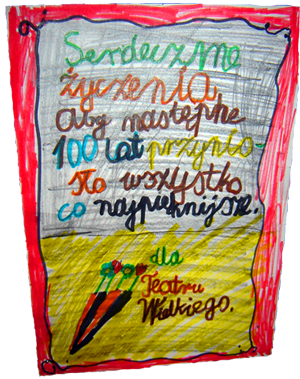 Serdeczne
życzenia,
Aby następne
100 lat przynio-
sło wszystko
co najpięknijsze.
dla
Teatru
Wielkiego.